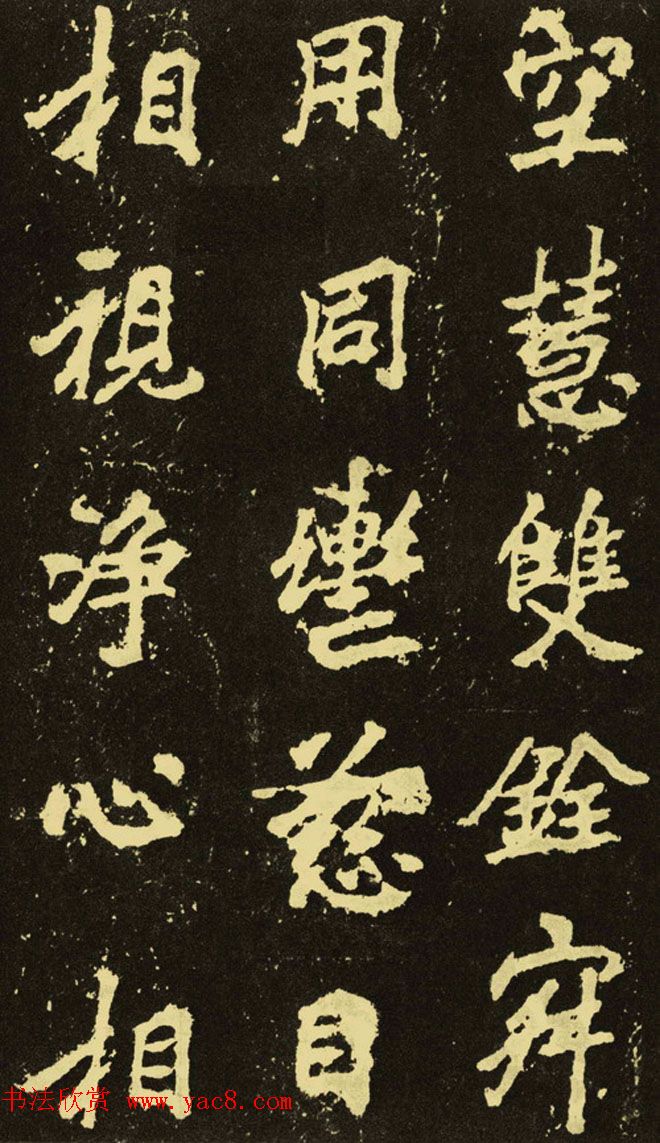 空慧雙銓寂
用同轡慈目
相視净心相
书法欣赏 www.yac8.com